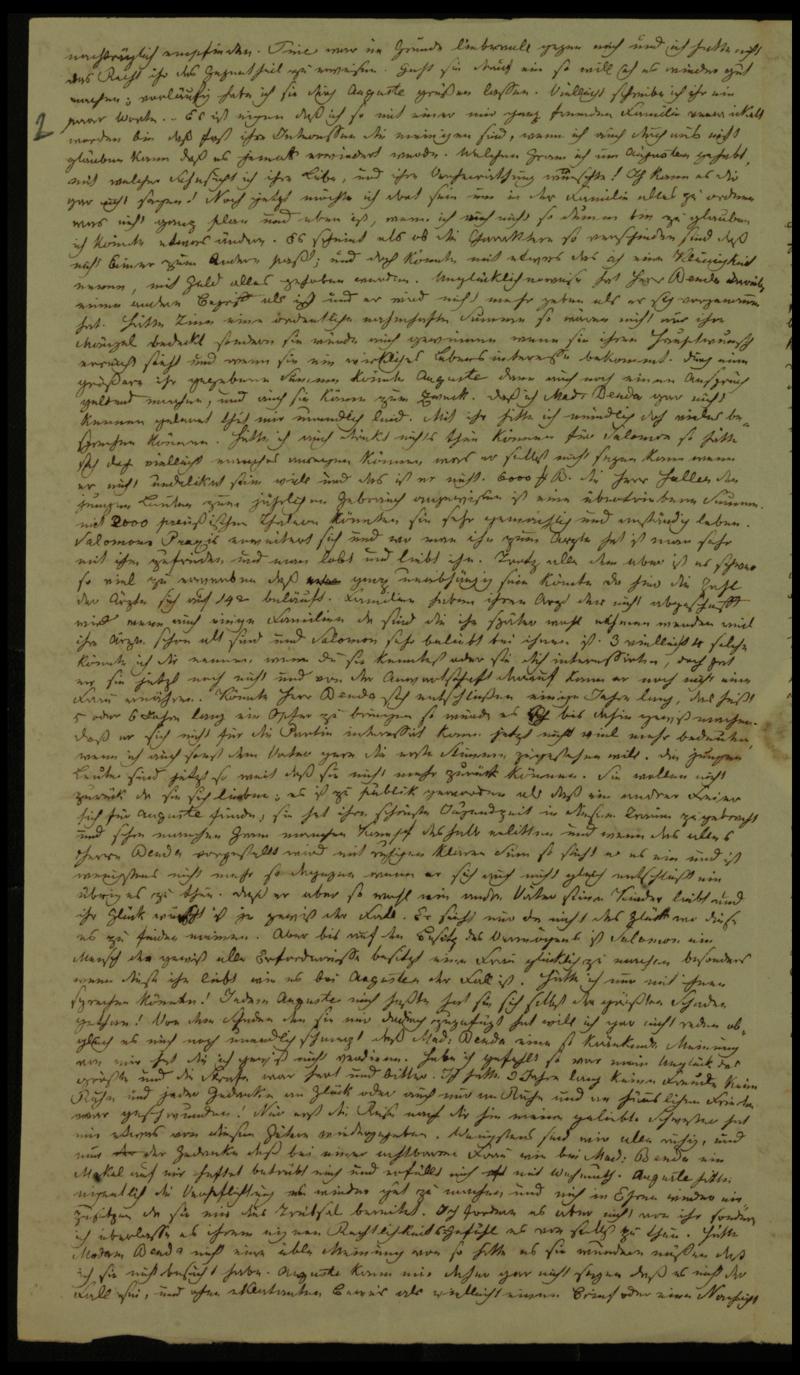 nachträglich empfinden. Sie war im Grunde liebevoll gegen mich und ich hatte nicht
das Recht ihr das Gegentheil zu erweisen. Geht sie darauf ein so will ich es wieder gut
machen; vorläufig habe ich sie durch Auguste grüßen lassen. Vielleicht schreibe ich ihr ein
2
paar Worte. – Es ist eigen daß ich so mit einer mir ganz fremden Familie verwickelt
worden bin daß fast ihre Interessen die meinigen sind, wenn ich auch durchaus nicht
glauben kann daß es jemals erwiedert werde. Welchen Gram ich um Augusten gehabt,
mit welcher Sehnsucht ich ihre Liebe, und ihre Verheirathung wünschte! Ich kann es dir
gar nicht sagen! Noch jetzt möchte ich dort sein um in der Familie alles zu ordnen
was nicht ganz plan und eben ist, wenn ich auch nicht so dumm bin zu glauben
ich könnte etwas ändern. Es scheint als ob die Charaktere so verschieden sind daß
nicht Einer zum Andern paßt; und doch könnte mit etwas das ich eine Kleinigkeit
nenne, mit Geld alles gehoben werden. Unglücklicherweise hat Herr Benda darüber
einen andern Begriff als ich und er wird nicht mehr geben als er sich vorgenommen
hat. Hätte eine ordentliche nahmhafte Summe so wären nicht nur ihre
Mängel bedeckt sondern sie würde auch gewinnen wenn sie ihren Hauptwunsch
erreicht sieht und wenn sie ein wirkliches Lebensinteresse bekommt. Durch eine
größere ihr gegebene Summe könnte Auguste dann auch noch einen Anspruch
geltend machen, und auch sie käme zum Zweck. Daß ich Mad. Benda gar nicht
kennen gelernt thut mir unendlich leid. Mit ihr hätte ich mündlich doch vieles be-
sprechen können. Hätte ich auch direkt nichts thun können für Salomon so hätte
ich doch vielleicht manches anregen können was er selbst nicht sagen kann wenn
er nicht undelikat sein will und das ist er nicht. 6000 B. die Herr Haller den
jungen Leuten zum jährlichen Gebrauch angewiesen ist eine übertriebene Summe.
mit 2000 preußischen Thalern könnten sie sehr gemächlich und anständig leben.
Salomons Praxis erweitert sich und wo man ihn zum Arzte hat ist man sehr
mit ihm zufrieden und man lobt und liebt ihn. Trotz alle dem aber ist es schwer
so viel zu erwerben daß man ganz unabhängig sein könnte da hier die Zahl
der Ärzte sich auf 142 beläuft. Familien haben ihren Arzt der nicht abgeschafft
wird wenn auch einige Familien da sind die ihn später wohl nehmen werden weil
ihre Ärzte schon alt sind und Salomon sehr beliebt bei ihnen ist. 3 vielleicht 4 solche
könnte ich dir nennen wenn du sie kenntest oder sie dich interessirten, doch hat
er sie jetzt noch nicht und von der Anwartschaft darauf kann er noch nicht eine
Frau ernähren. Könnte Herr Benda sich entschließen einige Jahre lang, das heißt
5 oder 6 Jahre lang ein Opfer zu bringen so würde es sich bis dahin gewiß machen.
Daß er sich nicht für die Partie interessirt kann jetzt nicht viel mehr bedeuten,
wenn ich auch sonst dem Vater gern die erste Stimme zugestehen will. Die jungen
Leute sind jetzt so weit daß sie nicht mehr zurück können. Sie wollen nicht
zurück da sie sich lieben; es ist zu publik geworden als daß ein andrer Freier
sich für Auguste fände; sie hat ihre schönste Jugendzeit in diesem Traum zugebracht
und schon manchen Gram manchen Kampf deshalb erlitten und wenn das alles
Herrn Benda vorgestellt wird mit ruhigem klaren Sinn so sieht er es ein und ist
wenigstens nicht mehr so dagegen wenn er sich auch nicht gleich entschließt ein
übriges zu thun. Daß er aber so wohl wie andre Väter seine Kinder liebt und
ihr Glück wünscht ist ja gewiß der Fall. Er sieht nur da nicht das Glück wo diese
es zu finden meinen. Aber bis auf den Besitz des Vermögens ist Salomon ein
Mensch der gewiß alle Erfordernisse besitzt eine Frau glücklich zu machen besonders
wenn diese ihn liebt wie es bei Augusten der Fall ist. Hätte ich nur mit ihnen
sprechen können! Indem Auguste mich haßte hat sie sich selbst den größten Schaden
gethan! Von dem Schaden den sie mir dadurch zugefügt hat will ich gar nicht reden ob-
gleich es mich noch unendlich schmerzt daß Mad: Benda eine so kränkende Meinung
von mir hat die ich gewiß nicht verdiene. Habe ich gefehlt so war mein Unglück das
größte und die Strafe war hart und bitter. Ich hatte 2 Jahre lang keine Freude kein
Ruhe und jeder Gedanke an Glück oder auch nur an Ruhe und an häuslichen Frieden
war geschwunden! Nur erst die Reise nach der hin meine geliebte Schwester hat
mir etwas von diesen Gütern wiedergegeben. Wenigstens sind wir alle ruhig, und
nur der Gedanke daß bei einer achtbaren Frau wie die Mad: Benda ein
Makel auf mir haftet betrübt mich und erfüllt mich oft mit Wehmuth. Auguste hätte
eigentlich die Verpflichtung es wieder gut zu machen und mich in Ehren wieder ein-
zusetzen da sie mir das Trübsal bereitet. Ich fordere es aber nicht von ihr sondern
ich überlasse es ihrem eignen Rechtlichkeitsgefühl es von selbst zu thun. Hätte
Madam Benda nicht eine üble Meinung von so hätte es sie wundern müssen daß
ich sie nicht besucht habe. Auguste kann mir daher gar nicht sagen daß es nicht der
Fall sei, und ohne eklatanten Beweis als vielleicht einen Brief oder eine Nachricht